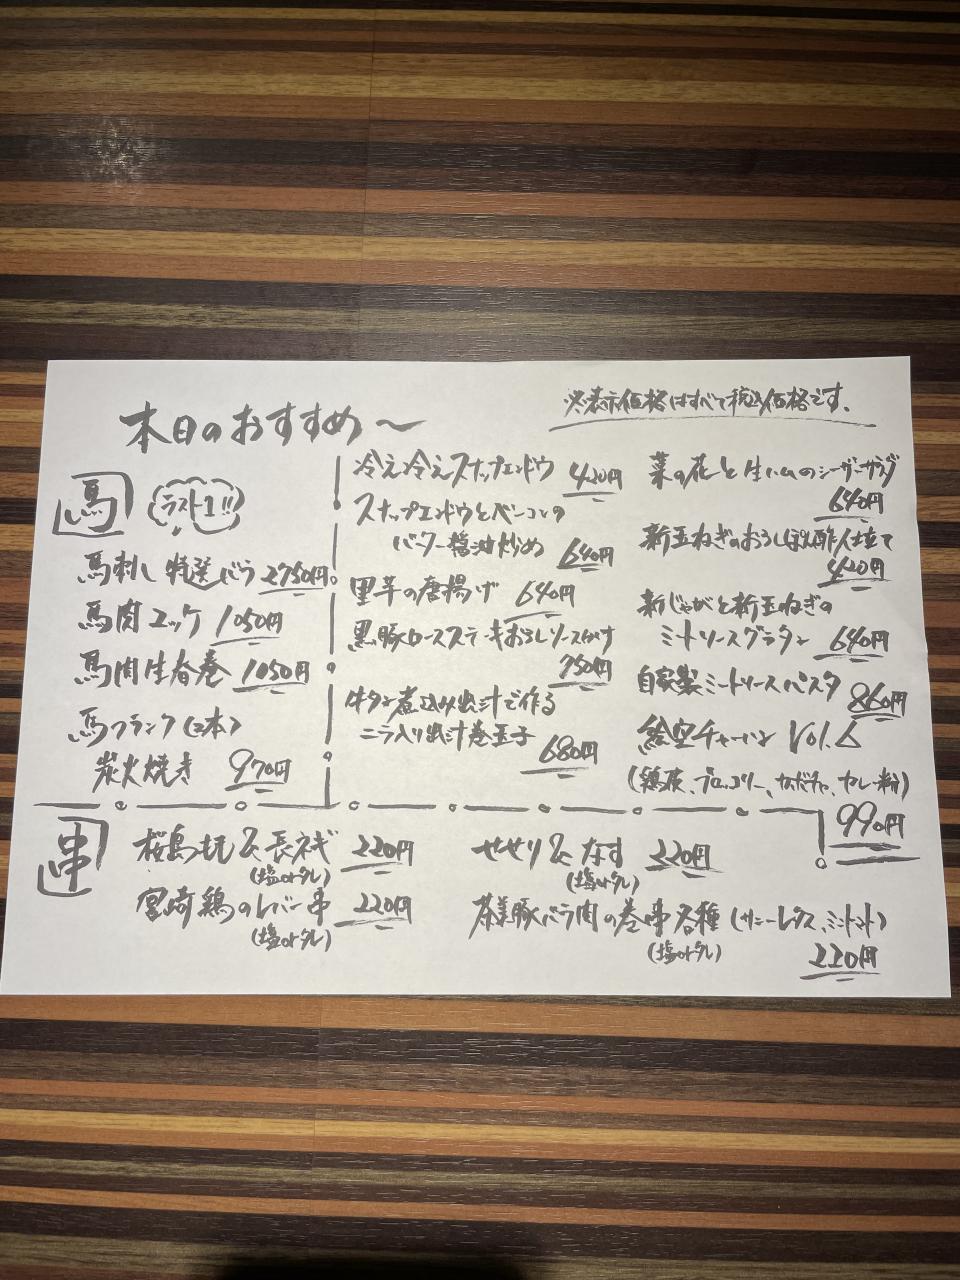 本日のおすすめ〜
※表示価格はすべて税込価格です。
馬
ラスト1!!
馬刺し 特選バラ 2750円
馬肉ユッケ 1050円
馬肉生春巻 1050円
馬フランク(2本)
炭火焼き 970円
冷え冷えスナップエンドウ 420円
スナップエンドウとベーコンの
バター醤油炒め 640円
里芋の唐揚げ 640円
黒豚ロースステーキおろしソースがけ
750円
牛タン煮込み出汁で作る
ニラ入り出汁巻玉子 680円
菜の花と生ハムのシーザーサラダ
640円
新玉ねぎのおろしぽん酢仕立て
420円
新じゃがと新玉ねぎの
ミートソースグラタン 640円
自家製ミートソースパスタ 860円
絵空チャーハン Vol.6
(鶏皮、ブロッコリー、カボチャ、カレー粉)
990円
串
桜島もも&長ネギ 220円
(塩orタレ)
宮崎鶏のレバー串 220円
(塩orタレ)
せせり&なす 220円
(塩orタレ)
茶美豚バラ肉の巻串各種(サニーレタス、ミニトマト)
(塩orタレ)
220円